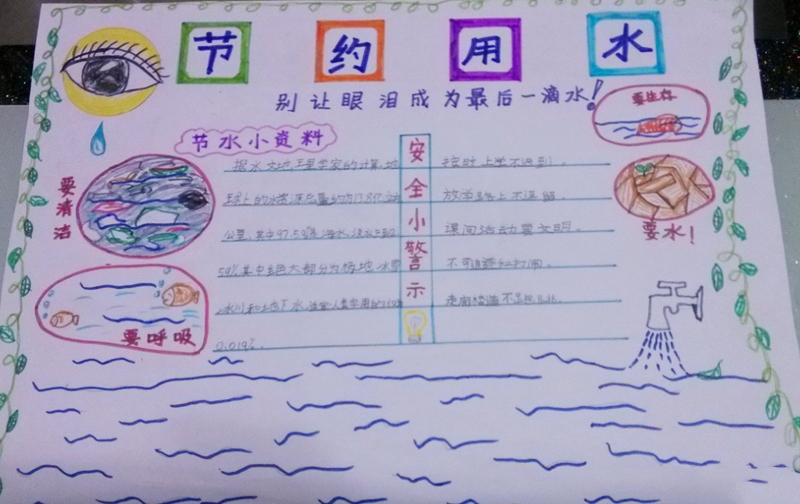 节约用水
别让眼泪成为最后一滴水!
节水小资料
据水文地理学家的计算,地
球上的水资源总量约为13.8亿立方
公里,其中97.5%是海水,淡水只占
其中绝大部分为极地冰雪
冰川和地下水,
0.01%。
安全小警示
按时上学不迟到。
放学路上不逗留。
课间活动要文明。
不可追逐和打闹。
走廊楼道不
要生存
要水!
要清洁
要呼吸